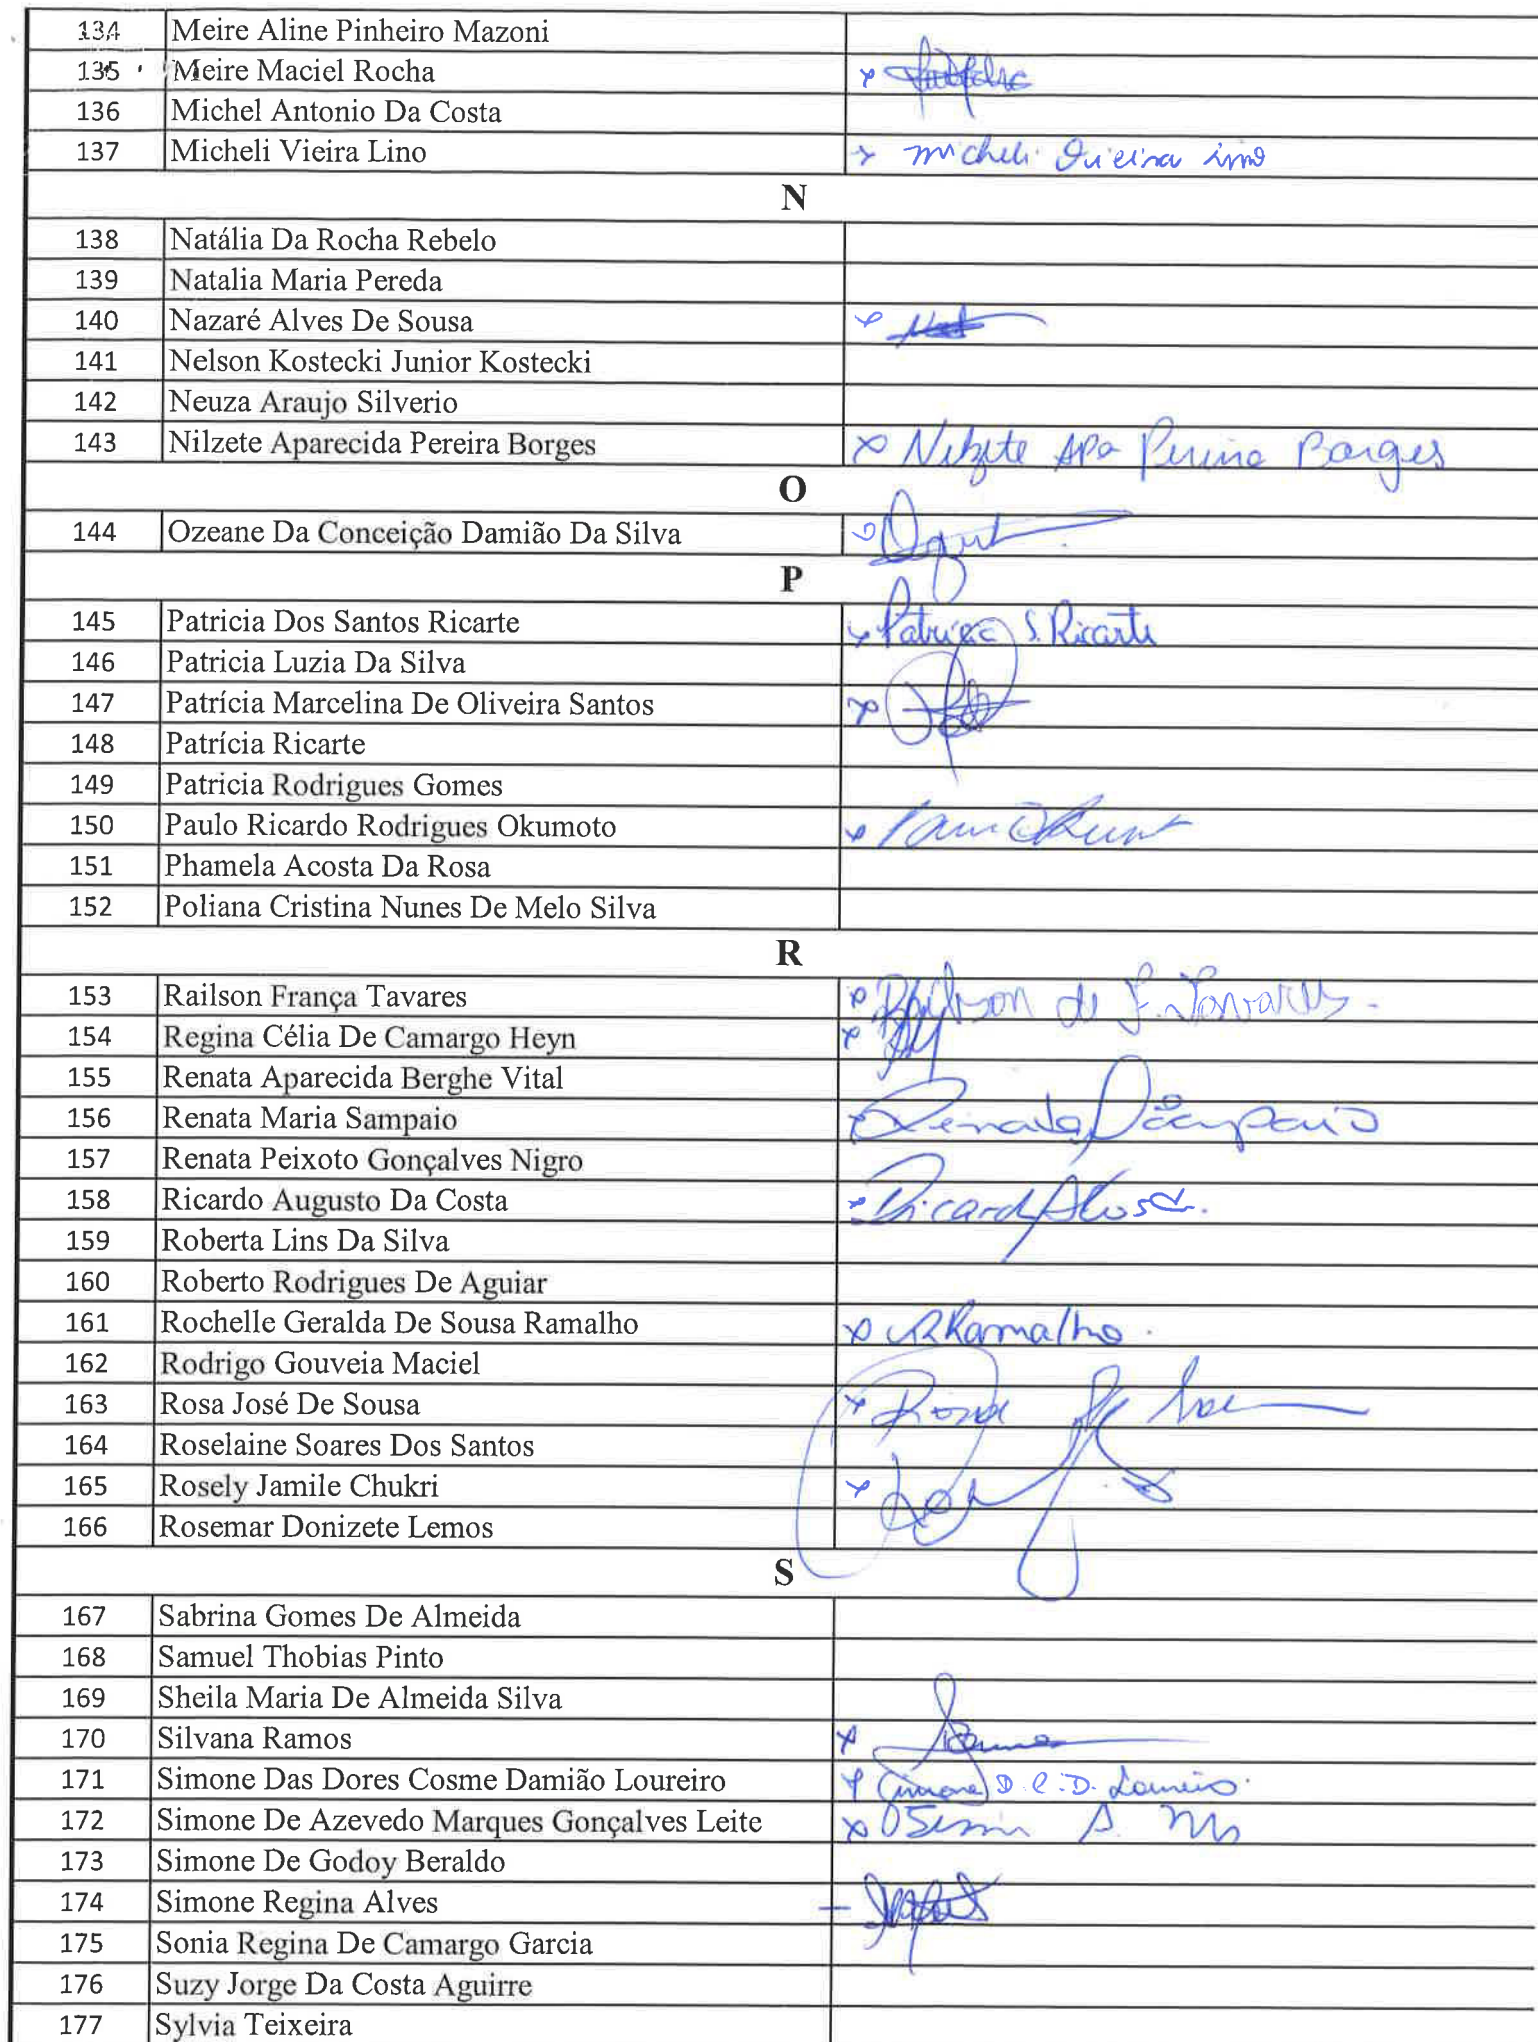 134 Meire Aline Pinheiro Mazoni
135 Meire Maciel Rocha
136 Michel Antonio Da Costa
137 Micheli Vieira Lino Micheli Vieira Lino
N
138 Natália Da Rocha Rebelo
139 Natalia Maria Pereda
140 Nazaré Alves De Sousa
141 Nelson Kostecki Junior Kostecki
142 Neuza Araujo Silverio
143 Nilzete Aparecida Pereira Borges Nilzete Apa Pereira Borges
O
144 Ozeane Da Conceição Damião Da Silva
P
145 Patricia Dos Santos Ricarte Patricia S. Ricarte
146 Patricia Luzia Da Silva
147 Patrícia Marcelina De Oliveira Santos
148 Patrícia Ricarte
149 Patricia Rodrigues Gomes
150 Paulo Ricardo Rodrigues Okumoto
151 Phamela Acosta Da Rosa
152 Poliana Cristina Nunes De Melo Silva
R
153 Railson França Tavares Railson de F. Tavares.
154 Regina Célia De Camargo Heyn
155 Renata Aparecida Berghe Vital
156 Renata Maria Sampaio Renata Sampaio
157 Renata Peixoto Gonçalves Nigro
158 Ricardo Augusto Da Costa
159 Roberta Lins Da Silva
160 Roberto Rodrigues De Aguiar
161 Rochelle Geralda De Sousa Ramalho RRamalho.
162 Rodrigo Gouveia Maciel
163 Rosa José De Sousa Rosa
164 Roselaine Soares Dos Santos
165 Rosely Jamile Chukri
166 Rosemar Donizete Lemos
S
167 Sabrina Gomes De Almeida
168 Samuel Thobias Pinto
169 Sheila Maria De Almeida Silva
170 Silvana Ramos
171 Simone Das Dores Cosme Damião Loureiro Simone D.C.D. Loureiro.
172 Simone De Azevedo Marques Gonçalves Leite
173 Simone De Godoy Beraldo
174 Simone Regina Alves
175 Sonia Regina De Camargo Garcia
176 Suzy Jorge Da Costa Aguirre
177 Sylvia Teixeira